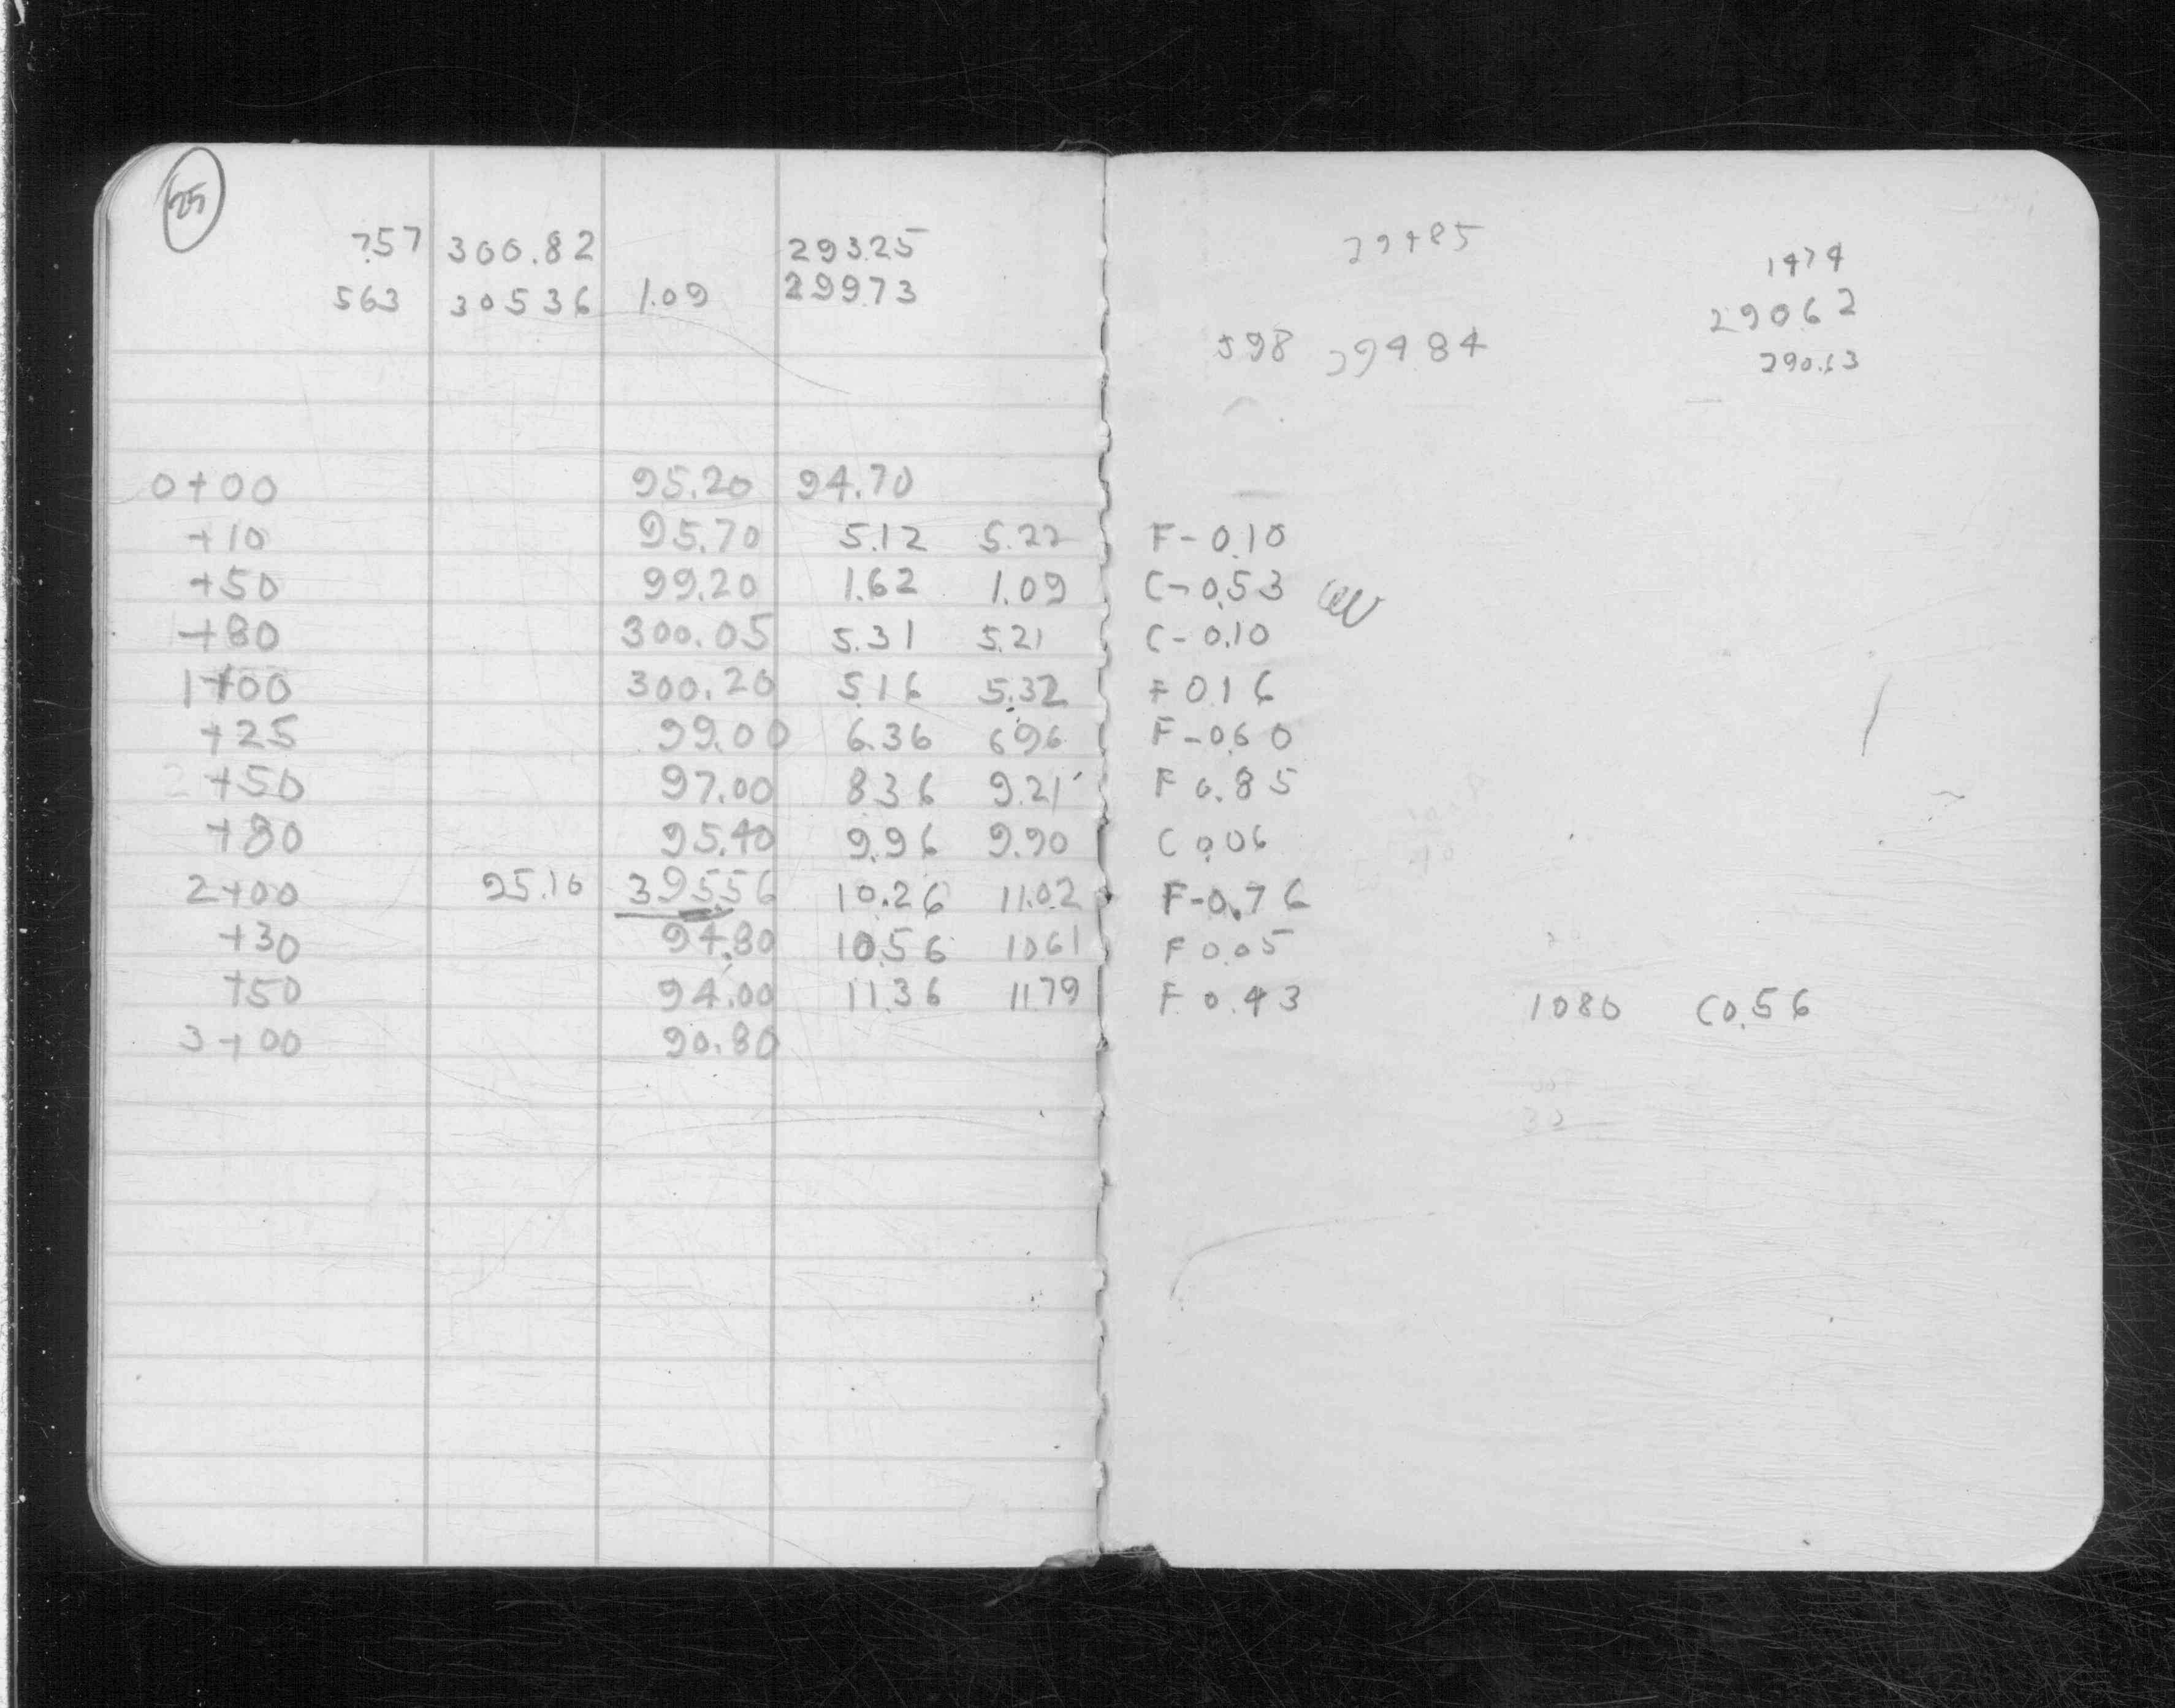 25
7.57 300.82 293.25 29485
1474
563 30536 1.09 29973 29062
598 29484 290.63
0+00 95.20 94.70
+10 95.70 5.12 5.22 F-0.10
+50 99.20 1.62 1.09 C-0.53
+80 300.05 5.31 5.21 C-0.10
1+00 300.20 5.16 5.32 F 0.16
+25 99.00 6.36 6.96 F-0.60
+50 97.00 8.36 9.21 F 0.85
+80 95.40 9.96 9.90 C 0.06
2+00 95.10 39556 10.26 11.02 F-0.76
+30 94.80 10.56 10.61 F 0.05
+50 94.00 11.36 11.79 F 0.43 1080 C0.56
3+00 90.80